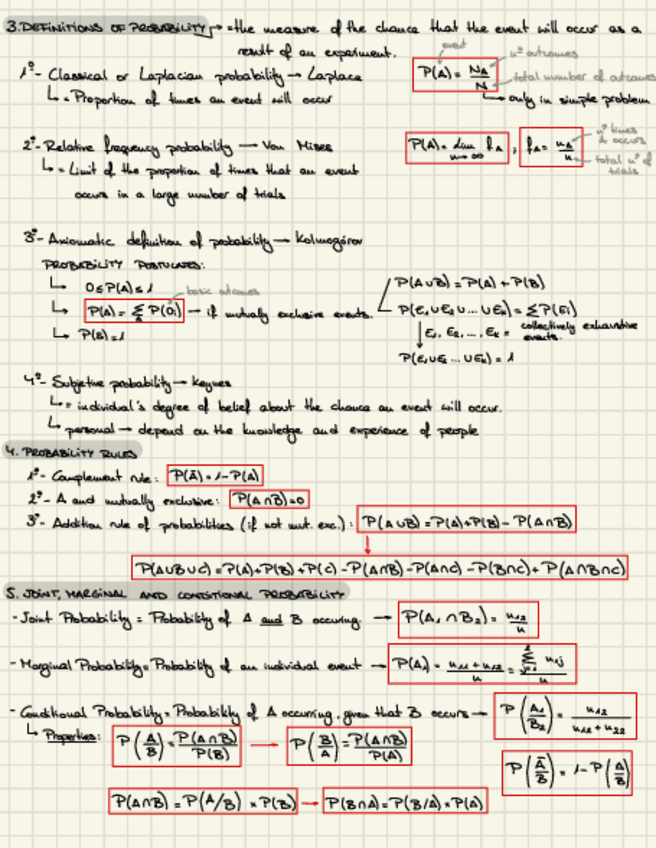 3. DEFINITIONS OF PROBABILITY → = the measure of the chance that the event will occur as a
result of an experiment.
1º- Classical or Laplacian probability → Laplace
↳ = Proportion of times an event will occur
event
P(A) = N_A / N
nº outcomes
total number of outcomes
↳ only in simple problem
2º- Relative frequency probability — Von Mises
↳ = Limit of the proportion of times that an event
occurs in a large number of trials
P(A) = lim n→∞ f_A , f_A = n_A / n
nº times A occurs
total nº of trials
3º- Axiomatic definition of probability → Kolmogórov
PROBABILITY POSTULATES:
↳ 0 ≤ P(A) ≤ 1
basic outcomes
↳ P(A) = Σ_A P(Oi) → if mutually exclusive events.
↳ P(S) = 1
P(A∪B) = P(A) + P(B)
P(E₁∪E₂∪...∪E_K) = ΣP(Ei)
↓ E₁, E₂, ..., E_K = collectively exhaustive events.
P(E₁∪E₂...∪E_K) = 1
4º- Subjetive probability → Keynes
↳ = individual's degree of belief about the chance an event will occur.
↳ personal → depend on the knowledge and experience of people
4. PROBABILITY RULES
1º- Complement rule: P(Ā) = 1 - P(A)
2º- A and mutually exclusive: P(A∩B) = 0
3º- Addition rule of probabilities (if not mut. exc.): P(A∪B) = P(A) + P(B) - P(A∩B)
↓
P(A∪B∪C) = P(A) + P(B) + P(C) - P(A∩B) - P(A∩C) - P(B∩C) + P(A∩B∩C)
5. JOINT, MARGINAL AND CONDITIONAL PROBABILITY
- Joint Probability = Probability of A and B occuring. → P(A₁∩B₂) = n₁₂ / n
- Marginal Probability = Probability of an individual event → P(A₁) = (n₁₁ + n₁₂) / n = Σ n₁j / n
- Conditional Probability = Probability of A occurring, given that B occurs → P(A₁/B₂) = n₁₂ / (n₁₂ + n₂₂)
↳ Properties: P(A/B) = P(A∩B) / P(B) → P(B/A) = P(A∩B) / P(A)
P(Ā/B) = 1 - P(A/B)
P(A∩B) = P(A/B) × P(B) → P(B∩A) = P(B/A) × P(A)